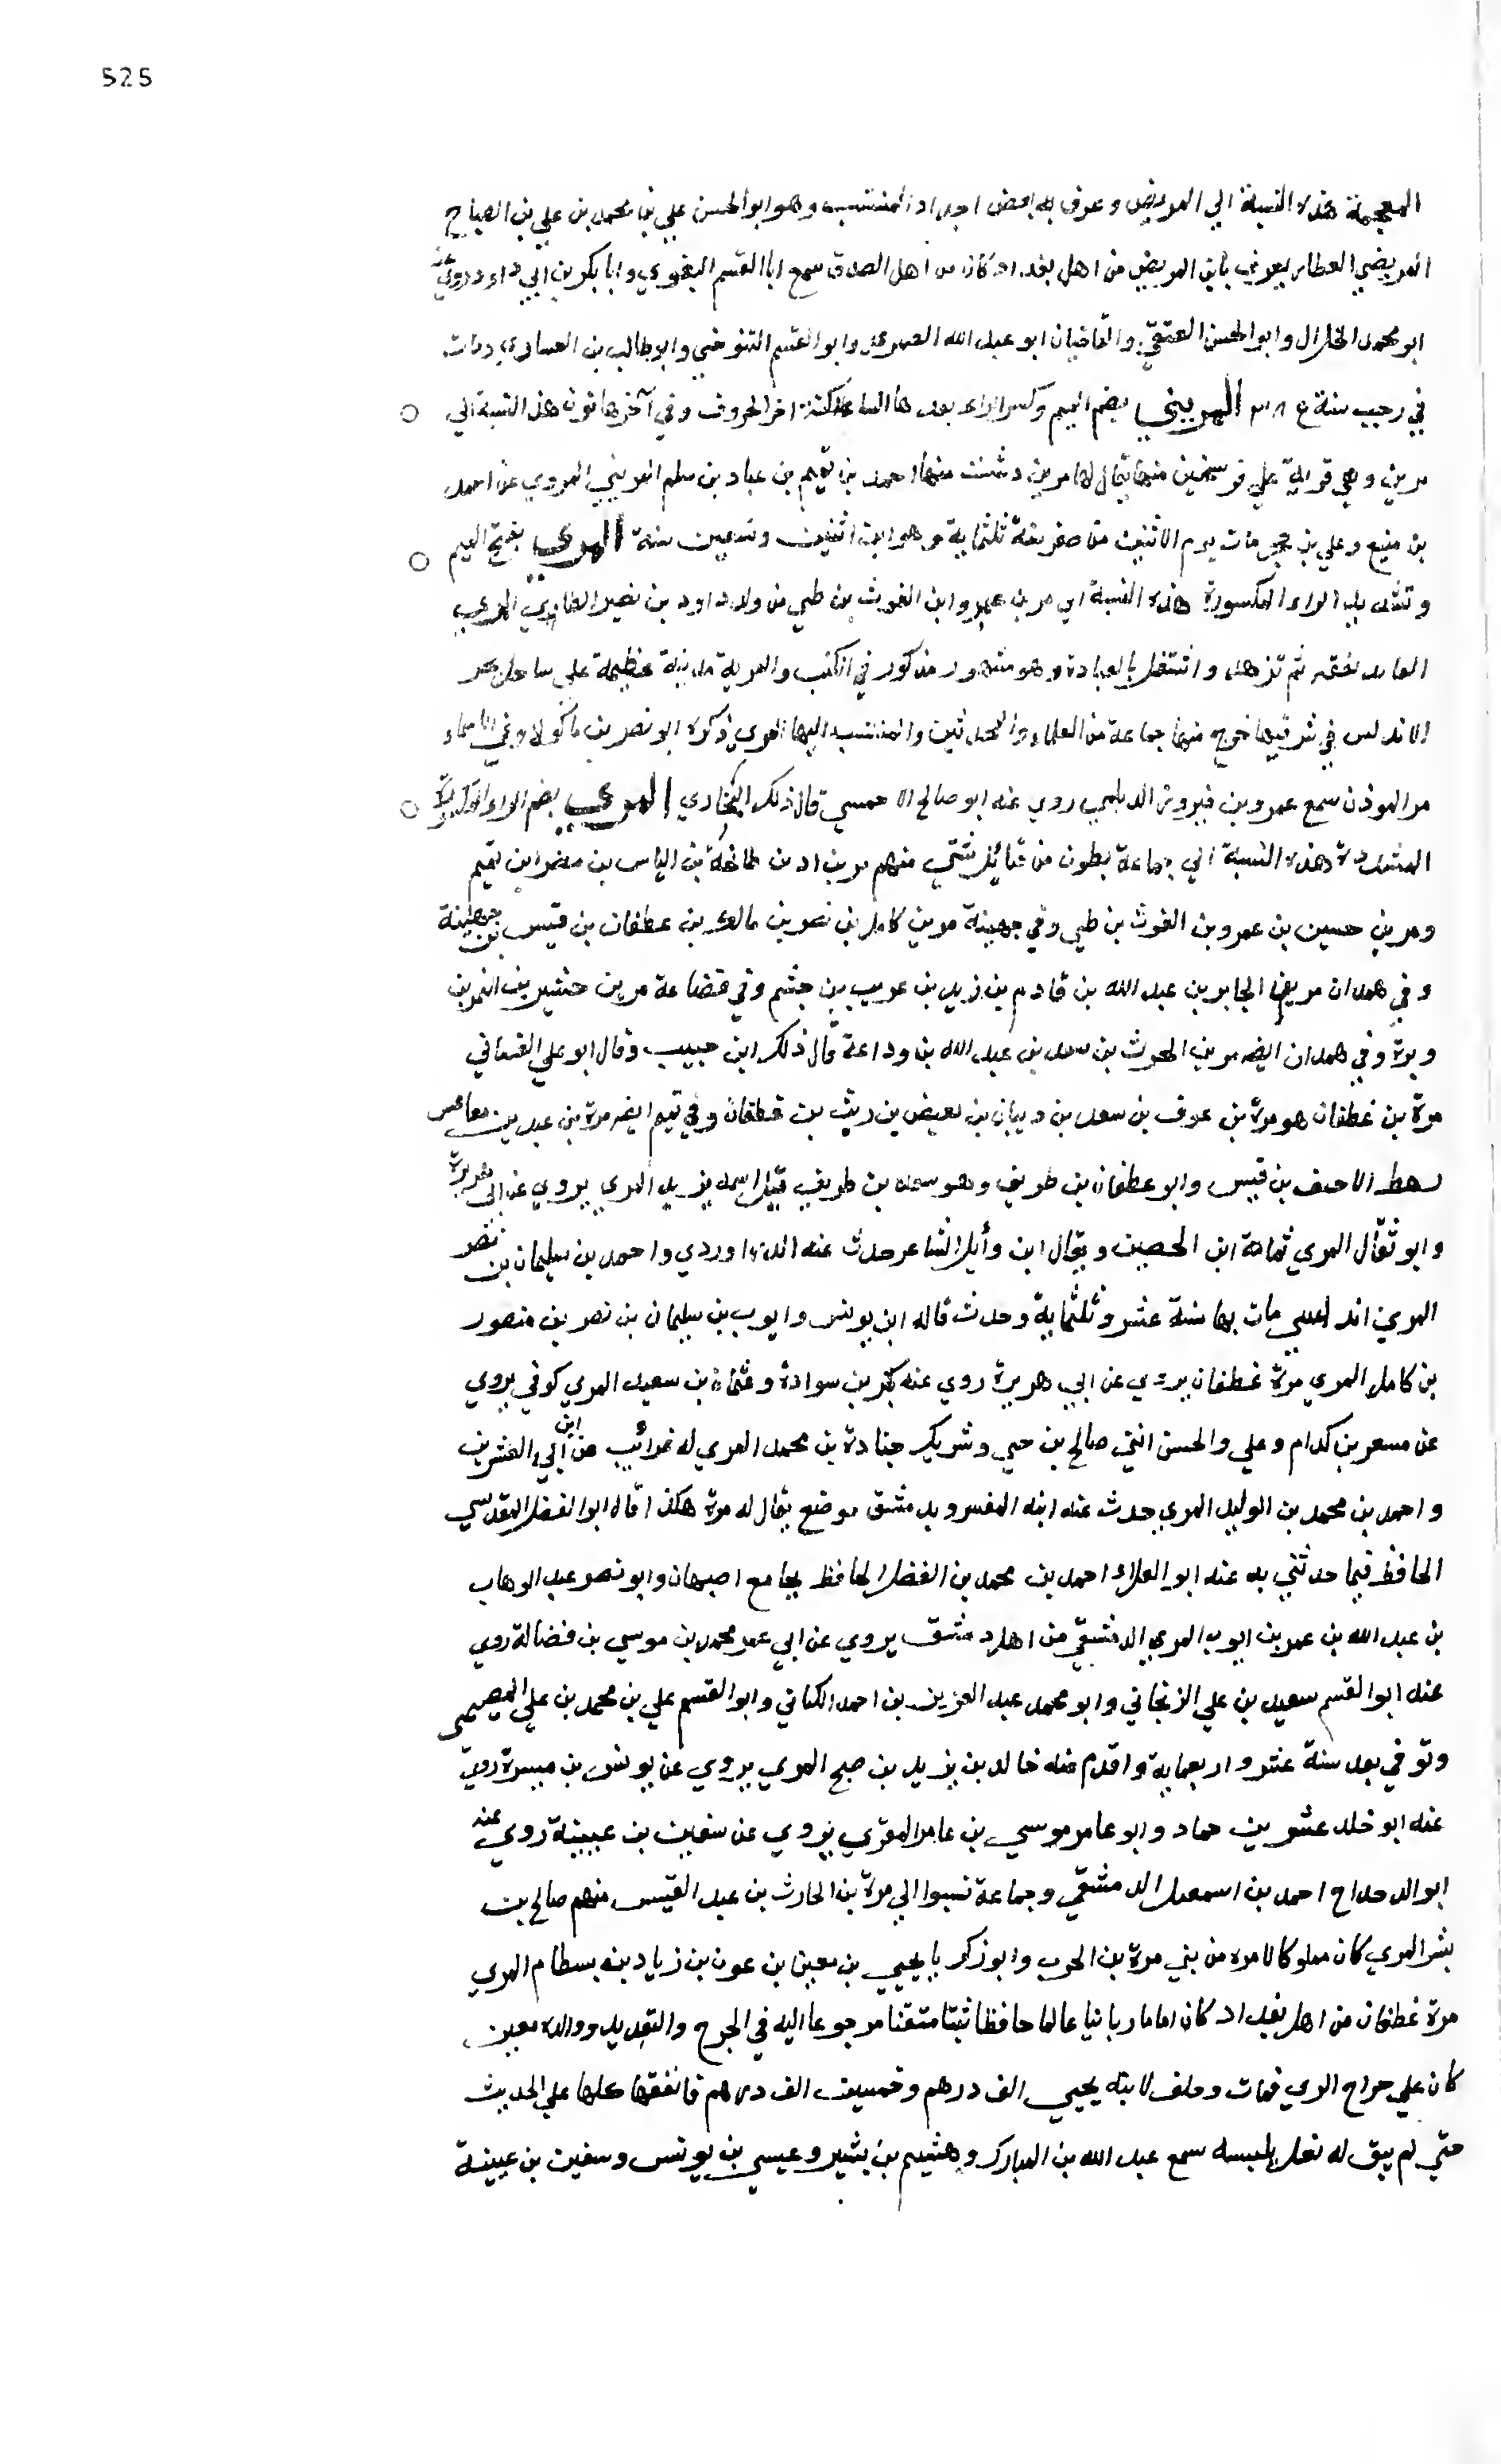 525
المعجمة هذه النسبة الي المريض وعرف به بعض اجداد المنتسب وهو ابو الحسن علي بن محمد بن علي بن الصباح
المريضي العطار يعرف بابن المريض من اهل بغداد كان من اهل الصدق سمع ابا القسم البغوي وابا بكر بن ابي داود روي عنه
ابو محمد الخلال وابو الحسن العتيقي والقاضيان ابو عبد الله الصيمري وابو القسم التنوخي وابو طالب بن العشاري ومات
في رجب سنة المريني بضم الميم وكسر الراء بعدها الساكنة اخر الحروف وفي آخرها نون هذه النسبة الي
مرين وهي قرية علي فرسخين منها يقال لها مرين دشت منها احمد بن تميم بن عباد بن سلم المريني المروزي عن احمد
بن منيع وعلي بن حجر مات يوم الاثنين من صفر سنة ثلثماية وهو ابن اثنين وتسعين سنة المري بفتح الميم
وتشديد الراء المكسورة هذه النسبة الي مر بن عمرو ابن الغوث بن طي من ولده داود بن نصير الطايي المري
العابد تفقه ثم تزهد واشتغل بالعبادة وهو مشهور مذكور في الكتب والمرية مدينة عظيمة علي ساحل بحر
الاندلس في شرقيها خرج منها جماعة من العلماء والمحدثين والمنتسب اليها المري ذكره ابو نصر بن ماكولا وفي الاسماء
مر الموذن سمع عمرو بن فيروز الديلمي روي عنه ابو صالح الاحمسي قال ذلك البخاري المري بضم الراء المكسورة
المشددة هذه النسبة الي جماعة بطون من قبائل شتي منهم مر بن اد بن طابخة بن الياس بن مضر ابن تميم
ومر بن حسين بن عمرو بن الغوث بن طي وفي جهينة مر بن كامل بن نصر بن مالك بن غطفان بن قيس بن جهينة
وفي همدان مر بن الجابر بن عبد الله بن قادم بن زيد بن عريب بن جشم وفي قضاعة مر بن خشين بن النمر بن
وبرة وفي همدان ايضه مر بن الحرث بن سعد بن عبد الله بن وداعة قال ذلك ابن حبيب وقال ابو علي الغساني
مرة بن غطفان هو مرة بن عوف بن سعد بن دبيان بن بغيض بن ريث بن غطفان وفي تميم ايضه مرة بن عبيد بن مقاعس
رهط الاحنف بن قيس وابو غطفان بن طريف وهو سعد بن طريف قيل اسمه يزيد المري يروي عن ابي هريرة
وابو ثفال المري ثمامة ابن الحصين ويقال ابن وأيل الشاعر حدث عنه الدراوردي واحمد بن سليمان بن نضر
المري اندلسي مات بها سنة عشر وثلثماية وحدث قاله ابن يونس وايوب بن سليمان بن نصر بن منصور
بن كامل المري مرة غطفان يروي عن ابي هريرة روي عنه بكر بن سوادة وعثمان بن سعيد المري كوفي يروي
عن مسعر بن كدام وعلي والحسن ابني صالح بن حي وشريك جنادة بن محمد المري له غرائب عن ابن أبي العشرين
واحمد بن محمد بن الوليد المري حدث عنه ابنه المفسر وبدمشق موضع يقال له مرة هكذا قاله ابو الفضل المقدسي
الحافظ فيما حدثني به عنه ابو العلاء احمد بن محمد بن الفضل الحافظ بجامع اصبهان وابو نصر عبد الوهاب
بن عبد الله بن عمر بن ايوب المري الدمشقي من اهل دمشق يروي عن ابي عمر محمد بن موسي بن فضالة روي
عنه ابو القسم سعيد بن علي الزنجاني وابو محمد عبد العزيز بن احمد الكتاني وابو القسم علي بن محمد بن علي المصيصي
وتوفي بعد سنة عشر واربعماية واقدم منه خالد بن يزيد بن صبح المري يروي عن يونس بن ميسرة روي
عنه ابو خلد عشر بن حماد وابو عامر موسي بن عامر المري يروي عن سفين بن عيينة روي عنه
ابو الدحداح احمد بن اسمعيل الدمشقي وجماعة نسبوا الي مرة بن الحارث بن عبد القيس منهم صالح بن
بشر المري كان مملوكا لامرة من بني مرة بن الحرب وابو زكريا يحيي بن معين بن عون بن زياد بن بسطام المري
مرة غطفان من اهل بغداد كان اماما ربانيا عالما حافظا ثبتا متقنا مرجوعا اليه في الجرح والتعديل ووالده معين
كان علي خراج الري فمات وخلف لابنه يحيي الف درهم وخمسين الف درهم فانفقها كلها علي الحديث
حتي لم يبق له نعل يلبسه سمع عبد الله بن المبارك وهشيم بن بشير وعيسي بن يونس وسفين بن عيينة